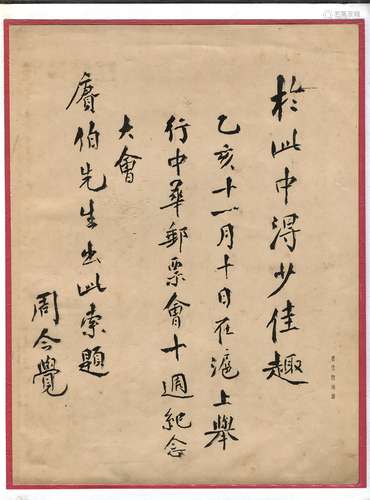 於此中得少佳趣
乙亥十一月十日在滬上舉
行中華郵票會十週紀念
大會
賡伯先生出此索題
周今覺